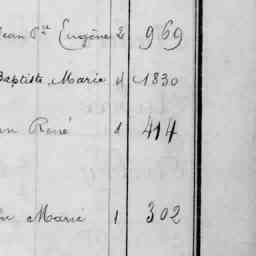 Jean Pre Eugène 2 969
Baptiste Marie 4 1830
René 1 414
Marie 1 302